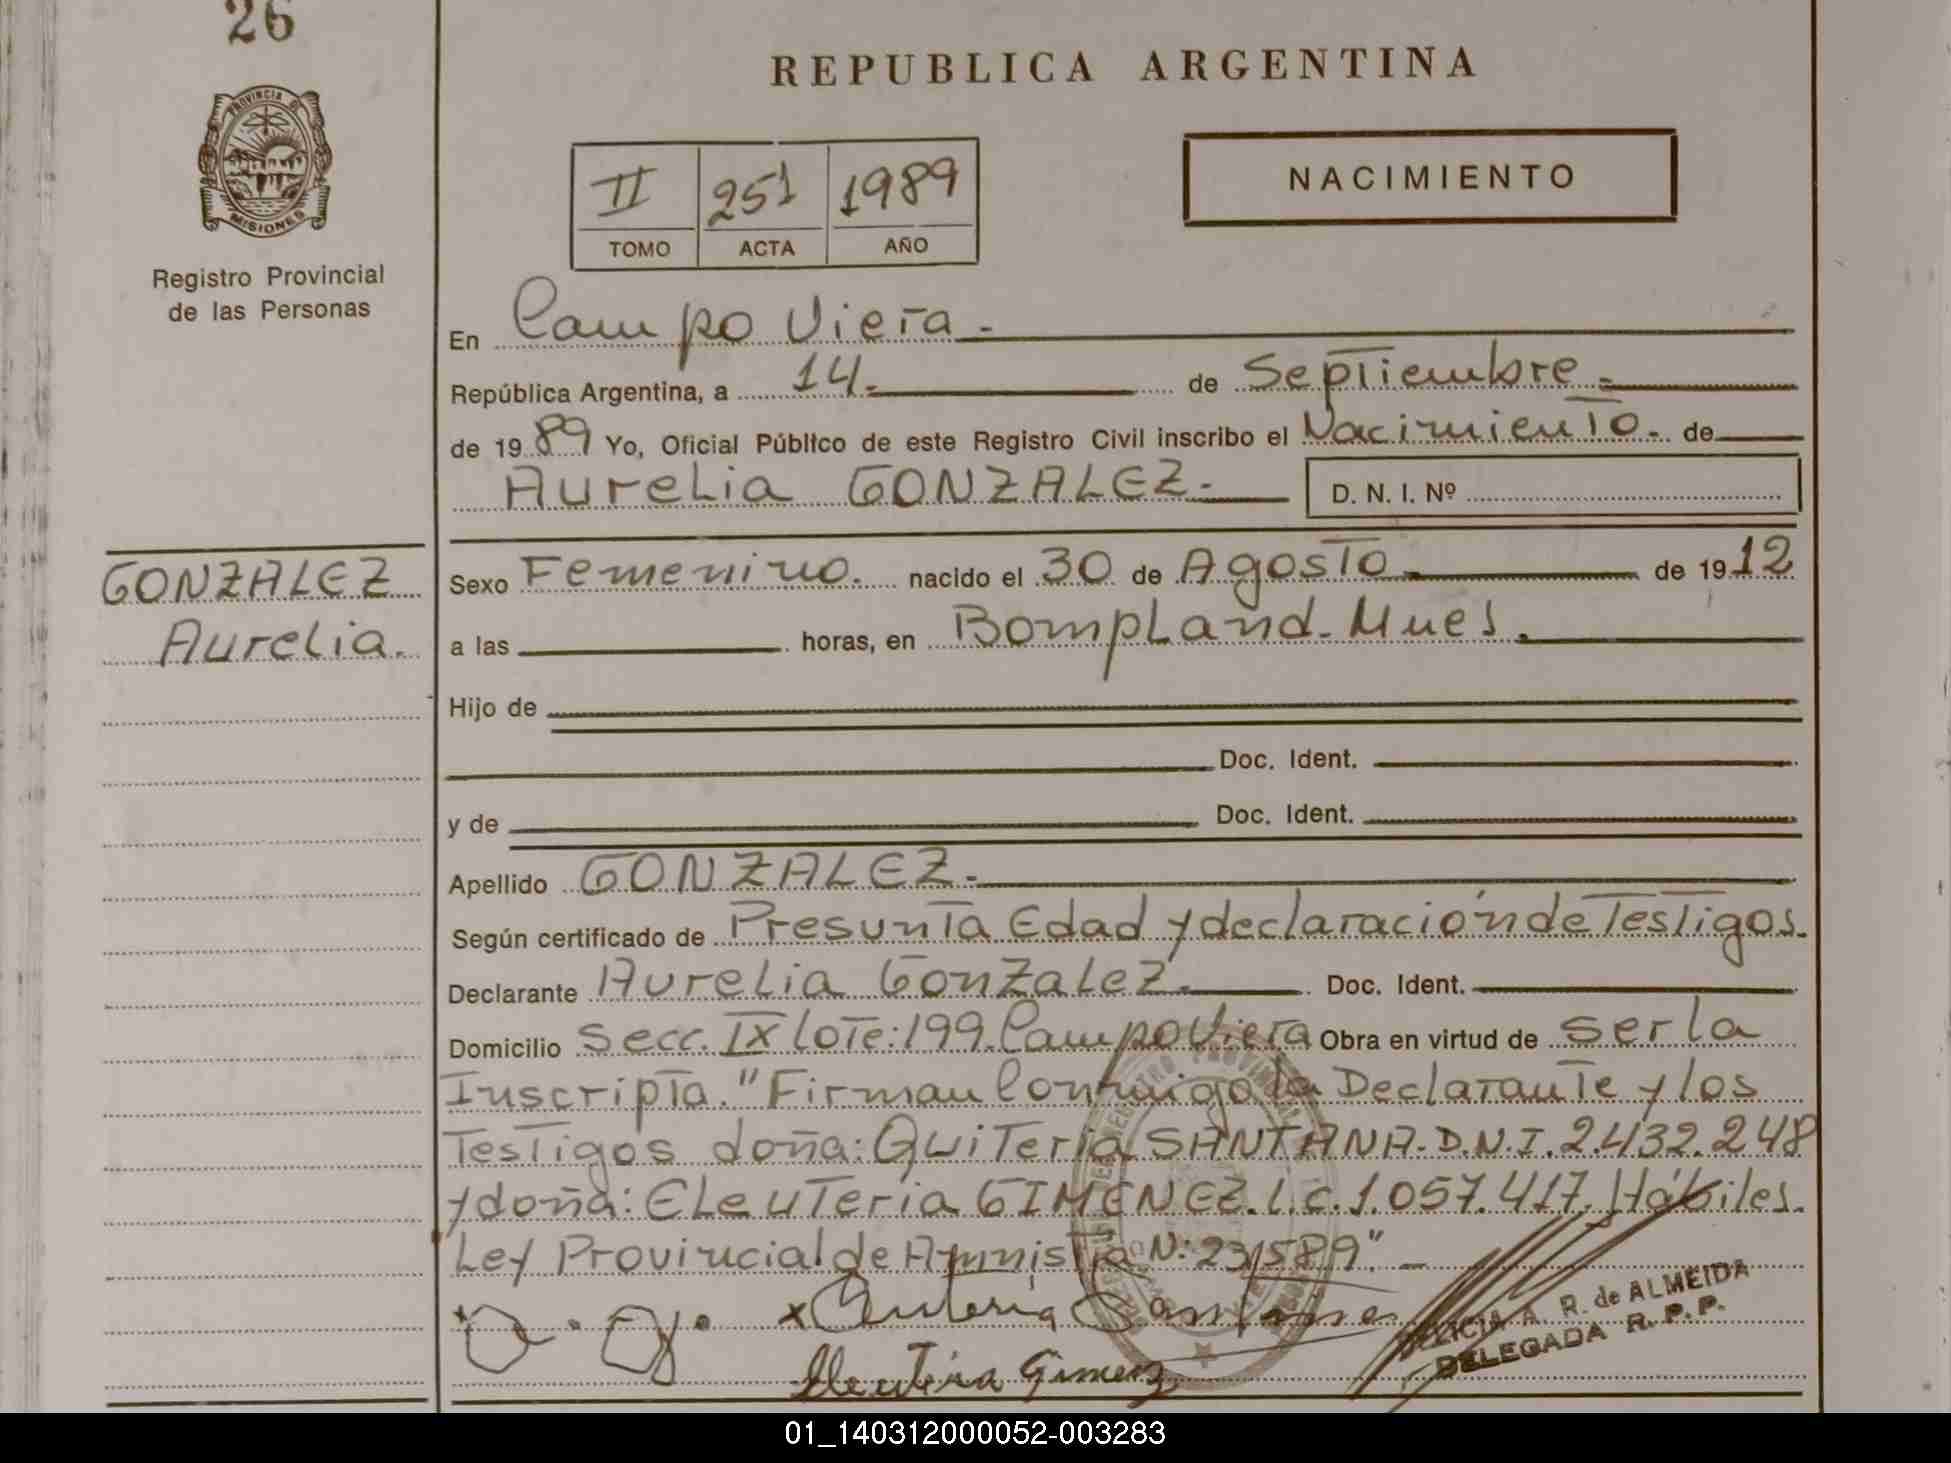 26
REPUBLICA ARGENTINA
PROVINCIA DE
MISIONES
Registro Provincial
de las Personas
II 251 1989
TOMO ACTA AÑO
NACIMIENTO
En Campo Viera.-
República Argentina, a 14.- de Septiembre.-
de 1989 Yo, Oficial Público de este Registro Civil inscribo el Nacimiento.- de
Aurelia GONZALEZ.- D. N. I. Nº
GONZALEZ
Aurelia.
Sexo Femenino. nacido el 30 de Agosto de 1912
a las horas, en Bompland-Mnes.
Hijo de
Doc. Ident.
y de Doc. Ident.
Apellido GONZALEZ.-
Según certificado de Presunta Edad y declaración de Testigos.
Declarante Aurelia Gonzalez.- Doc. Ident.
Domicilio Secc. IX lote: 199. Campo Viera Obra en virtud de ser la
Inscripta. "Firman Conmigo la Declarante y los
Testigos doña: Quiteria SANTANA-D.N.I. 2.432.248
y doña: Eleuteria GIMENEZ. L.C. 1.057.417. Hábiles.
Ley Provincial de Amnistía N: 23/589" -
x Quiteria Santana
Eleuteria Gimenez
FELICIA A. R. de ALMEIDA
DELEGADA R. P. P.
01_140312000052-003283